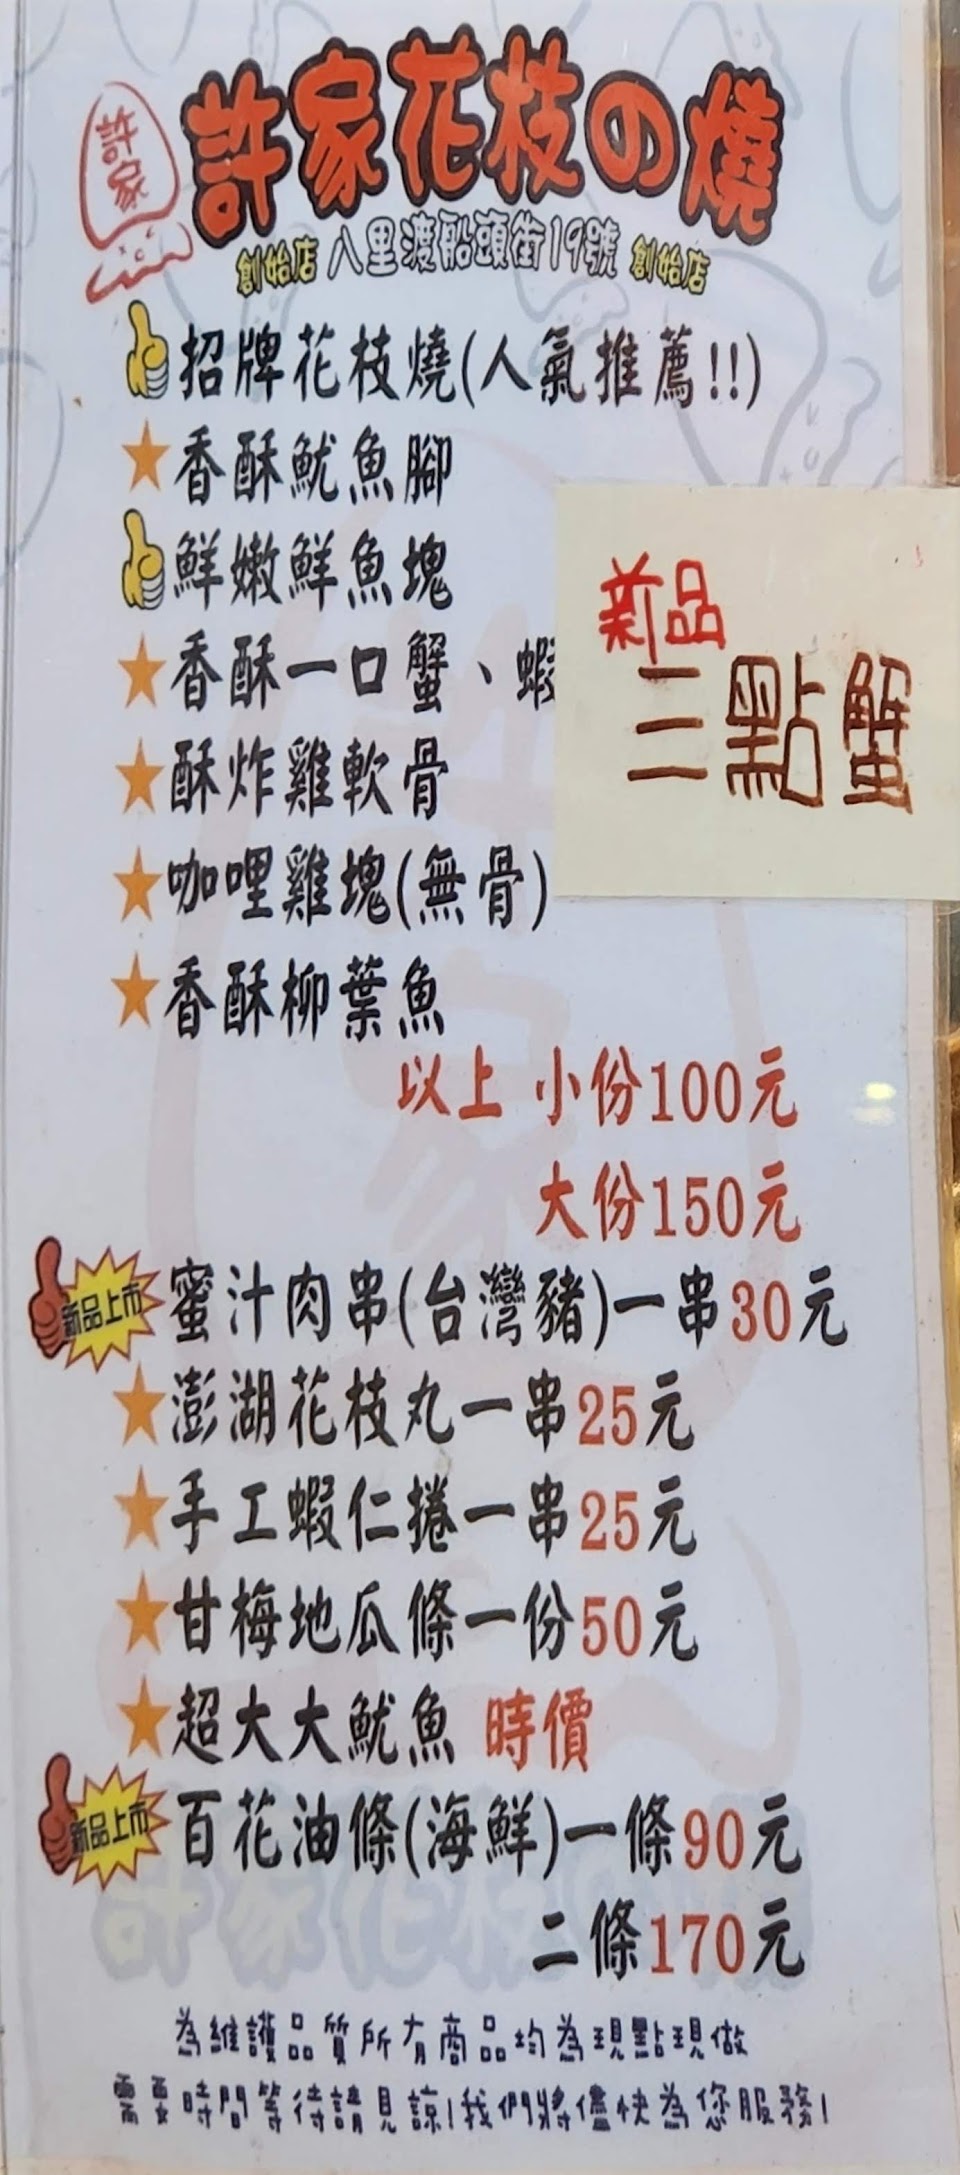 許家
許家花枝の燒
創始店 八里渡船頭街19號 創始店
招牌花枝燒(人氣推薦!!)
香酥魷魚腳
鮮嫩鮮魚塊
香酥一口蟹、蝦
新品
三點蟹
酥炸雞軟骨
咖哩雞塊(無骨)
香酥柳葉魚
以上 小份100元
大份150元
新品上市 蜜汁肉串(台灣豬)一串30元
澎湖花枝丸一串25元
手工蝦仁捲一串25元
甘梅地瓜條一份50元
超大大魷魚 時價
新品上市 百花油條(海鮮)一條90元
二條170元
為維護品質所有商品均為現點現做
需要時間等待請見諒!我們將儘快為您服務!